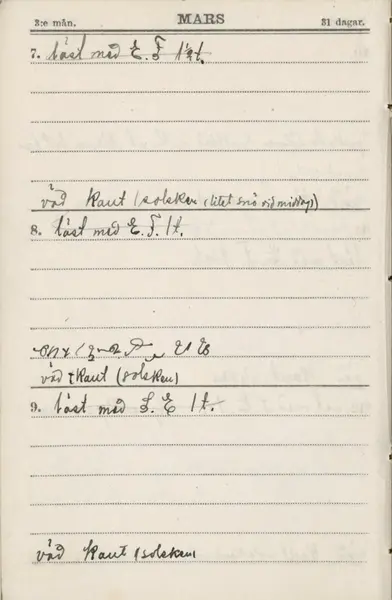 3:e mån. MARS 31 dagar.
7. läst med E. F. 1½t.
väd Kaut (solsken (litet snö vid middag)
8. läst med E. F. 1t.
väd Kaut (solsken)
9. läst med F. E 1t.
väd Kaut (solsken)